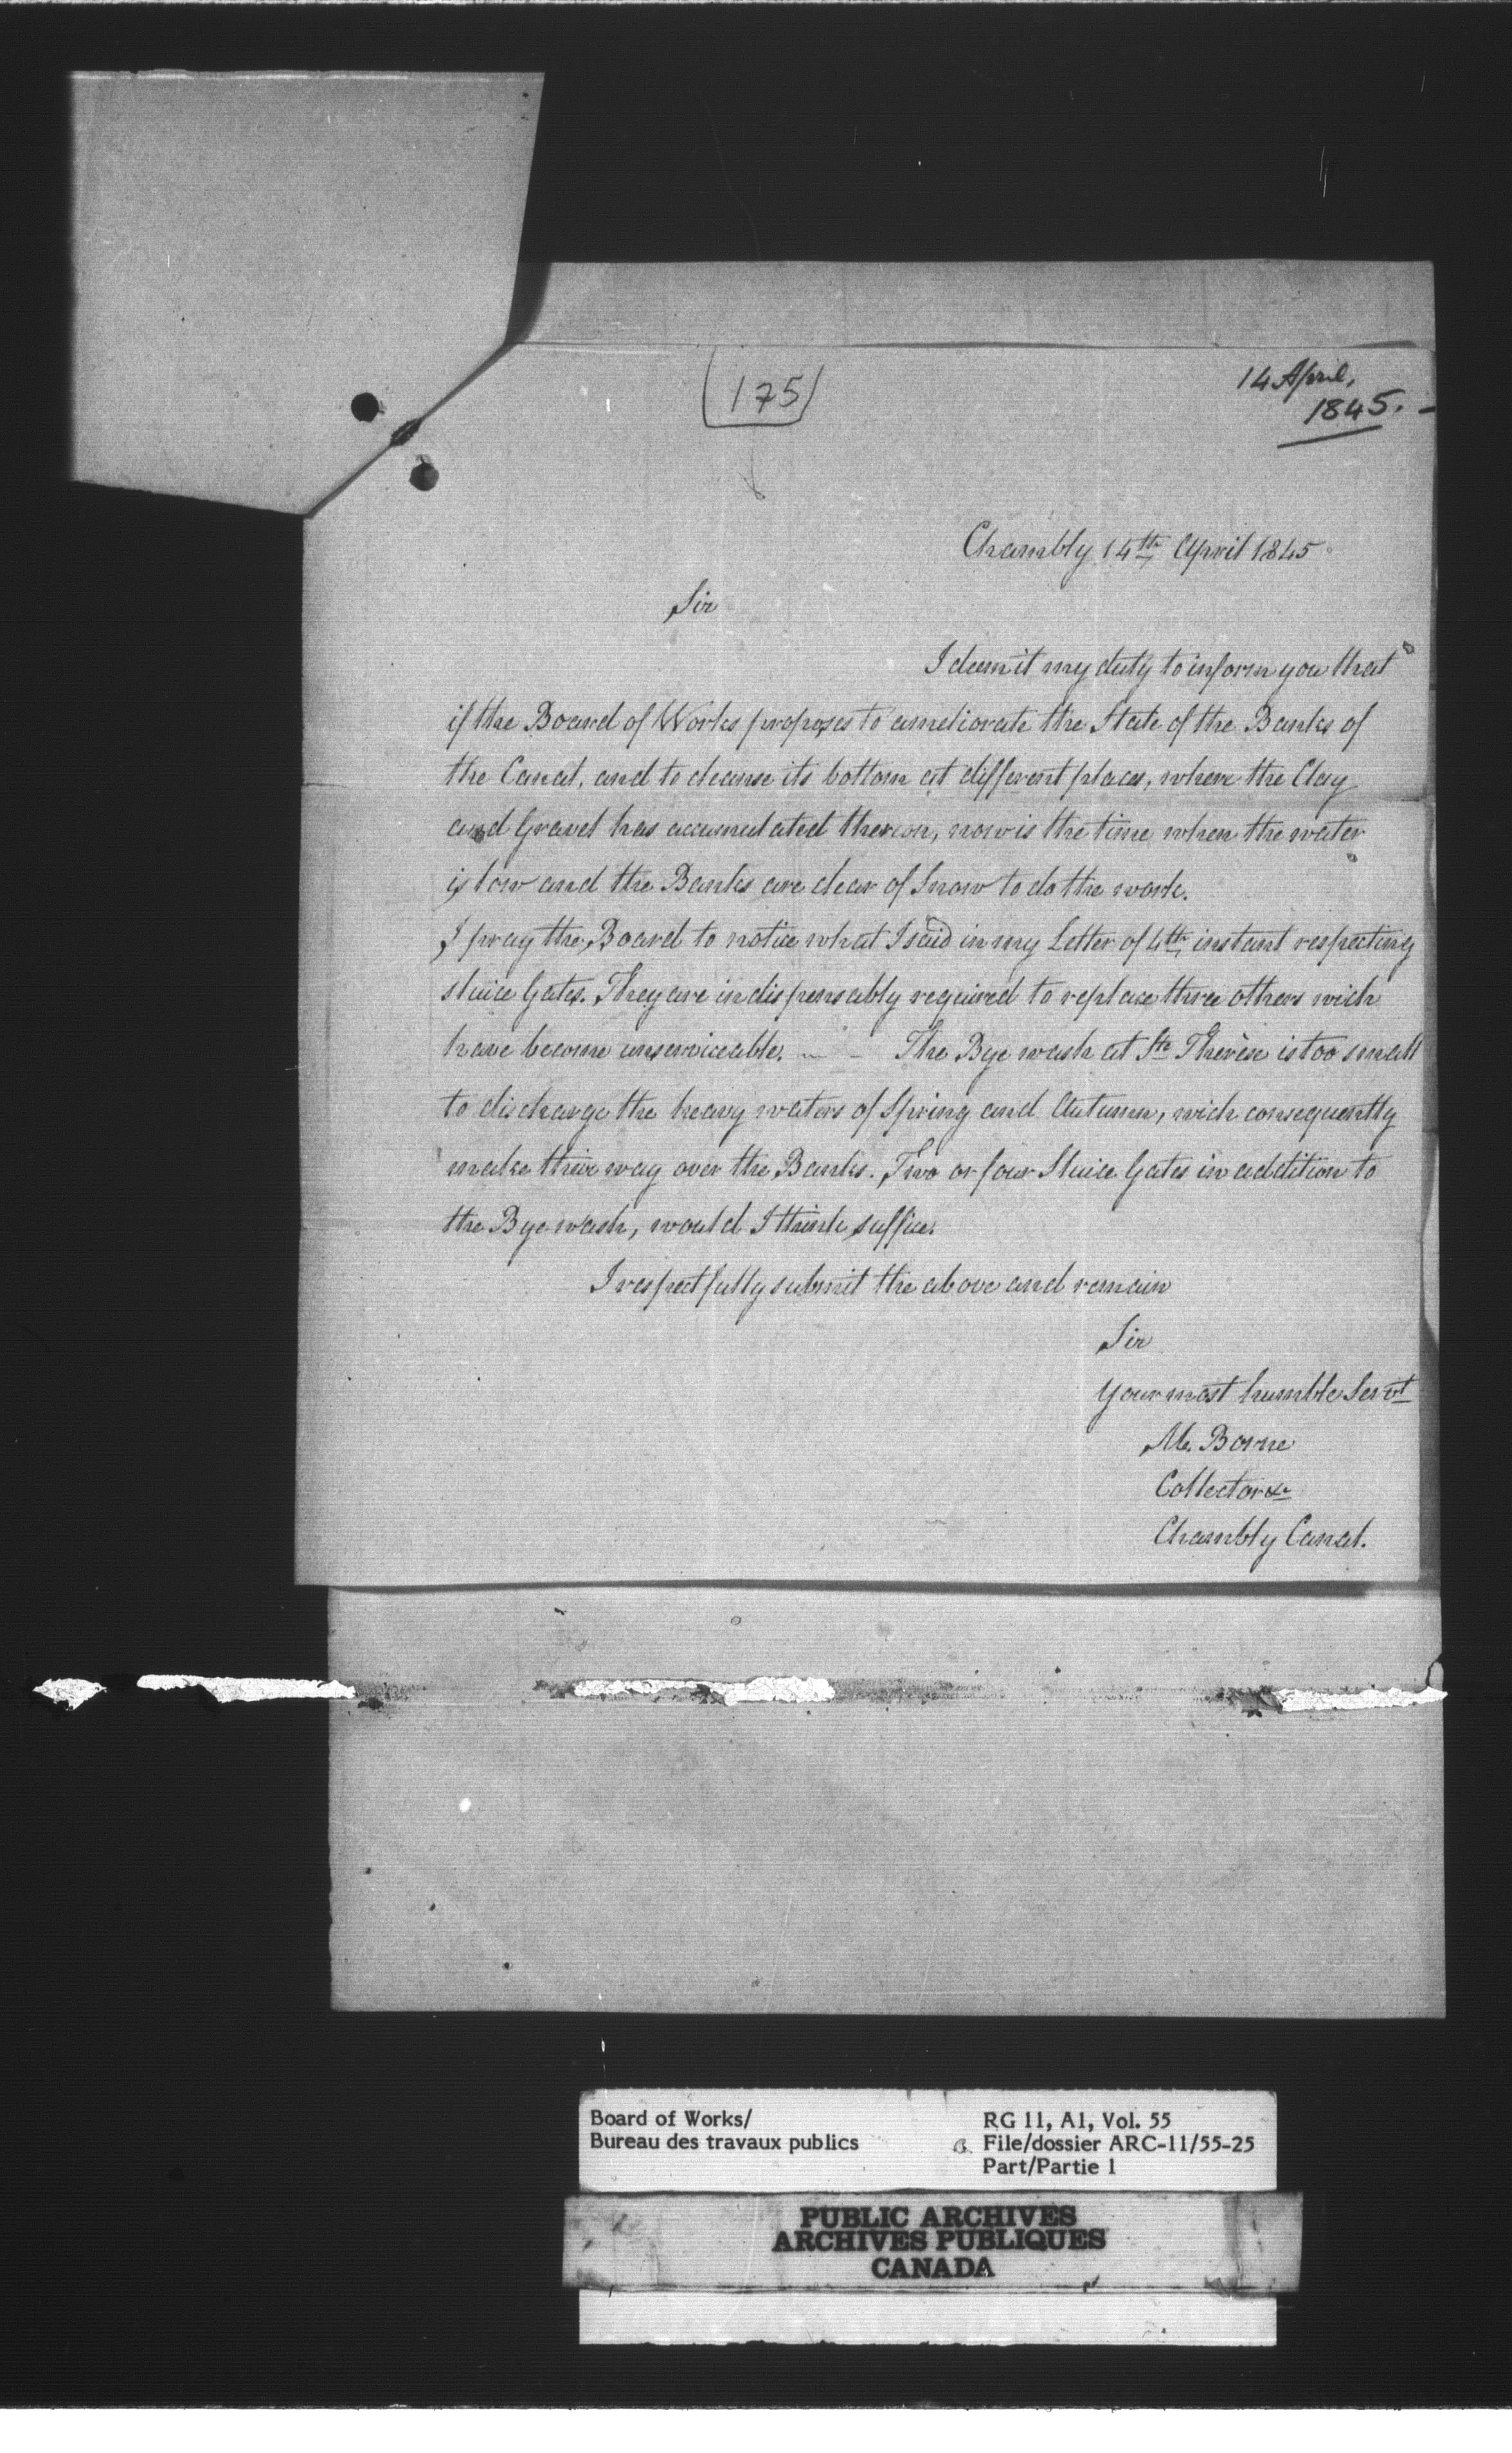 (175)
14 April,
1845. -
Chambly 14th April 1845.
Sir
I deem it my duty to inform you that
if the Board of Works proposes to ameliorate the State of the Banks of
the Canal, and to cleanse its bottom at different places, where the Clay
and Gravel has accumulated thereon, now is the time when the water
is low and the Banks are clear of Snow to do the work.
I pray the Board to notice what I said in my Letter of 4th instant respecting
Sluice Gates. They are indispensably required to replace three others wich
have become unserviceable. — - The Bye wash at Ste Thérèse is too small
to discharge the heavy waters of Spring and Autumn, wich consequently
make thier way over the Banks. Two or four Sluice Gates in addition to
the Bye wash, would I think suffice.
I respectfully submit the above and remain
Sir
Your most humble Servt
M. Borne
Collector &c
Chambly Canal.
Board of Works/
Bureau des travaux publics
RG 11, A1, Vol. 55
File/dossier ARC-11/55-25
Part/Partie 1
PUBLIC ARCHIVES
ARCHIVES PUBLIQUES
CANADA